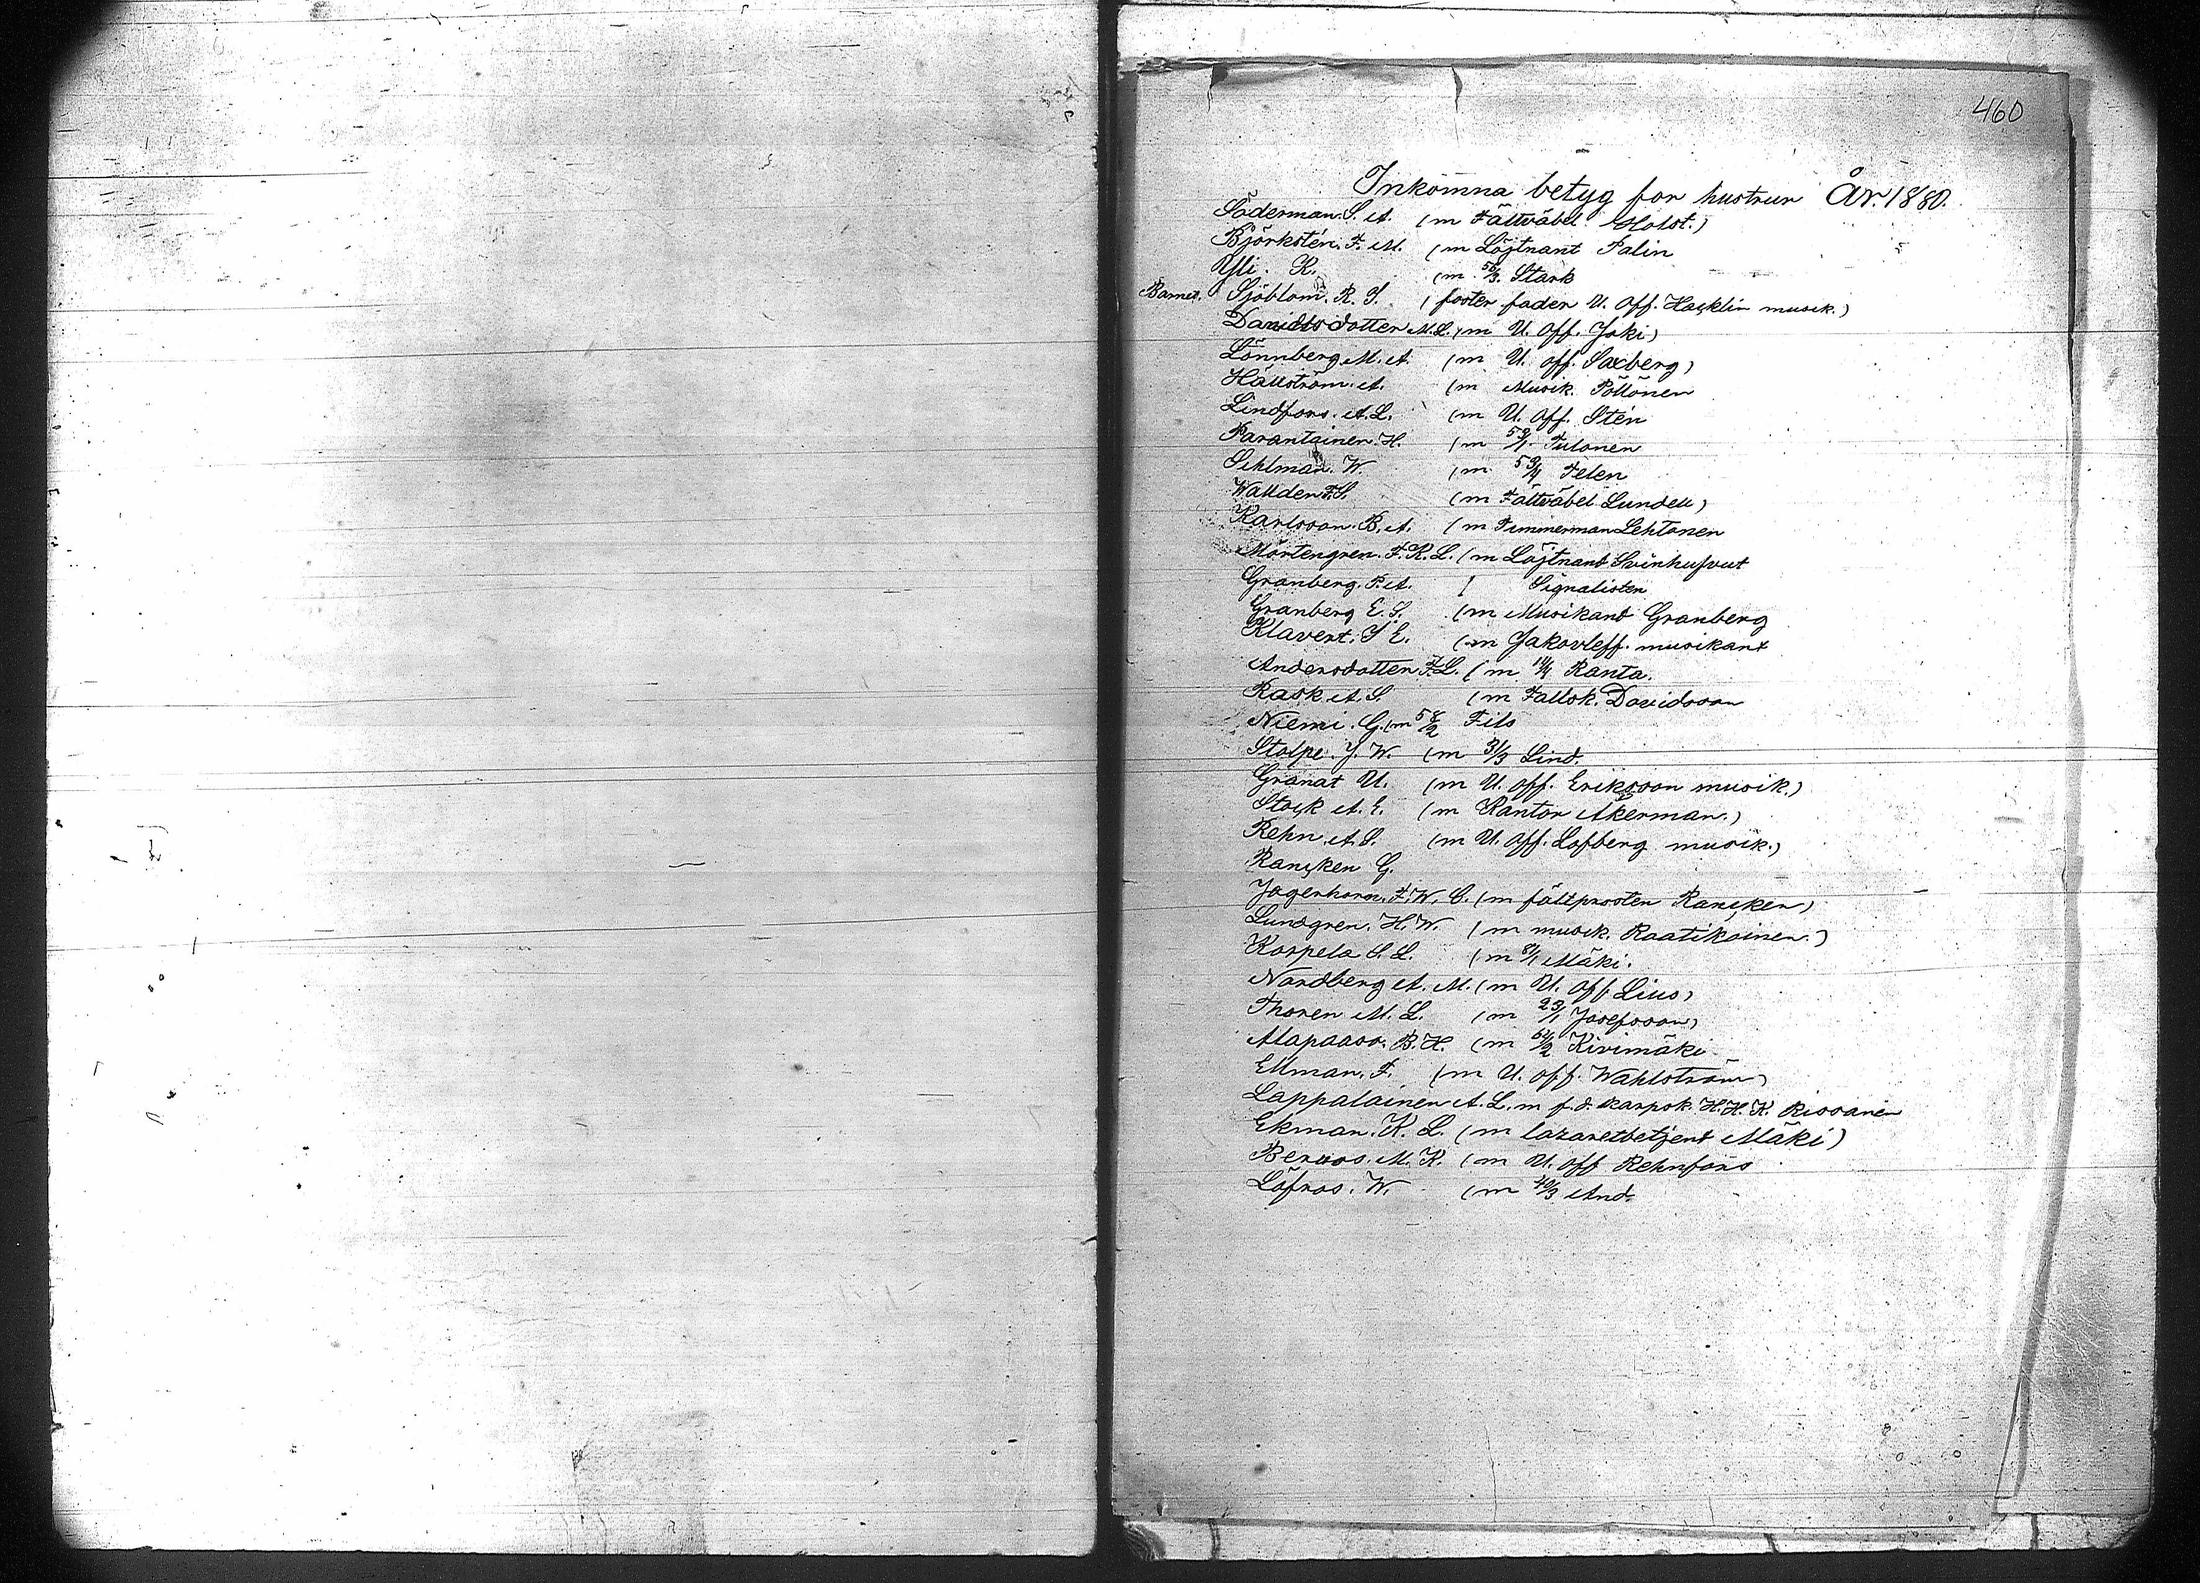 460
Inkomna betyg for hustrur År. 1880.
Söderman. S. A. (m Fältväbel Holst.)
Björkstén. F. M. (m Löjtnant Palin
Yli. K. (m 56/3 Stark
Barnet. Sjöblom. R. S. (foster fader U. Off. Hacklin musik.)
Davidsdotter M. L. (m U. Off. Joki)
Lönnberg M. A. (m U. off. Saxberg)
Hällström. A. (m Musik. Pöllönen
Lindfors. A. L. (m U. Off. Stén
Parantainen. H. (m Tulonen
Sehlman. W. (m 59/4 Felen
Wallden F. S. (m Fältväbel Lundell)
Karlsson. B. A. (m Timmerman Lehtonen
Mörtengren. F. K. L. (m Löjtnant Svinhufvut
Granberg. P. A. ( Signalisten
Granberg E. S. (m Musikand Granberg
Klavert. S E. (m Jakovleff. musikant
Andersdotter F. L. (m 14/4 Ranta.
Rask A. S (m Faltsk. Davidsson
Niemi. G. (m 58/2 Fils
Stolpe J. W. (m 31/3 Lind.
Granat U. (m U. off. Eriksson musik.)
Stock A. E. (m Kantor Akerman.)
Rehn A. S. (m U. Off. Lofberg musik.)
Rancken G.
Jagerhorn. F. W. C. (m fältprosten Rancken)
Lundgren. H. W. (m musik. Raatikainen.)
Korpela S. L. (m 81/1 Mäki.
Nordberg A. M. (m U. Off. Lius)
Thoren M. L. (m 23/1 Josefsson)
Alapaaso. B. H. (m 61/2 Kivimäki
Ellman. F. (m U. off. Wahlström)
Lappalainen A. L. m f. d. karpsk. H. H. K. Rissanen
Ekman. K. L. (m lazaretbetjent Mäki)
M. K. (m U. off Rehnfors
Löfros. W. (m 40/3 And.